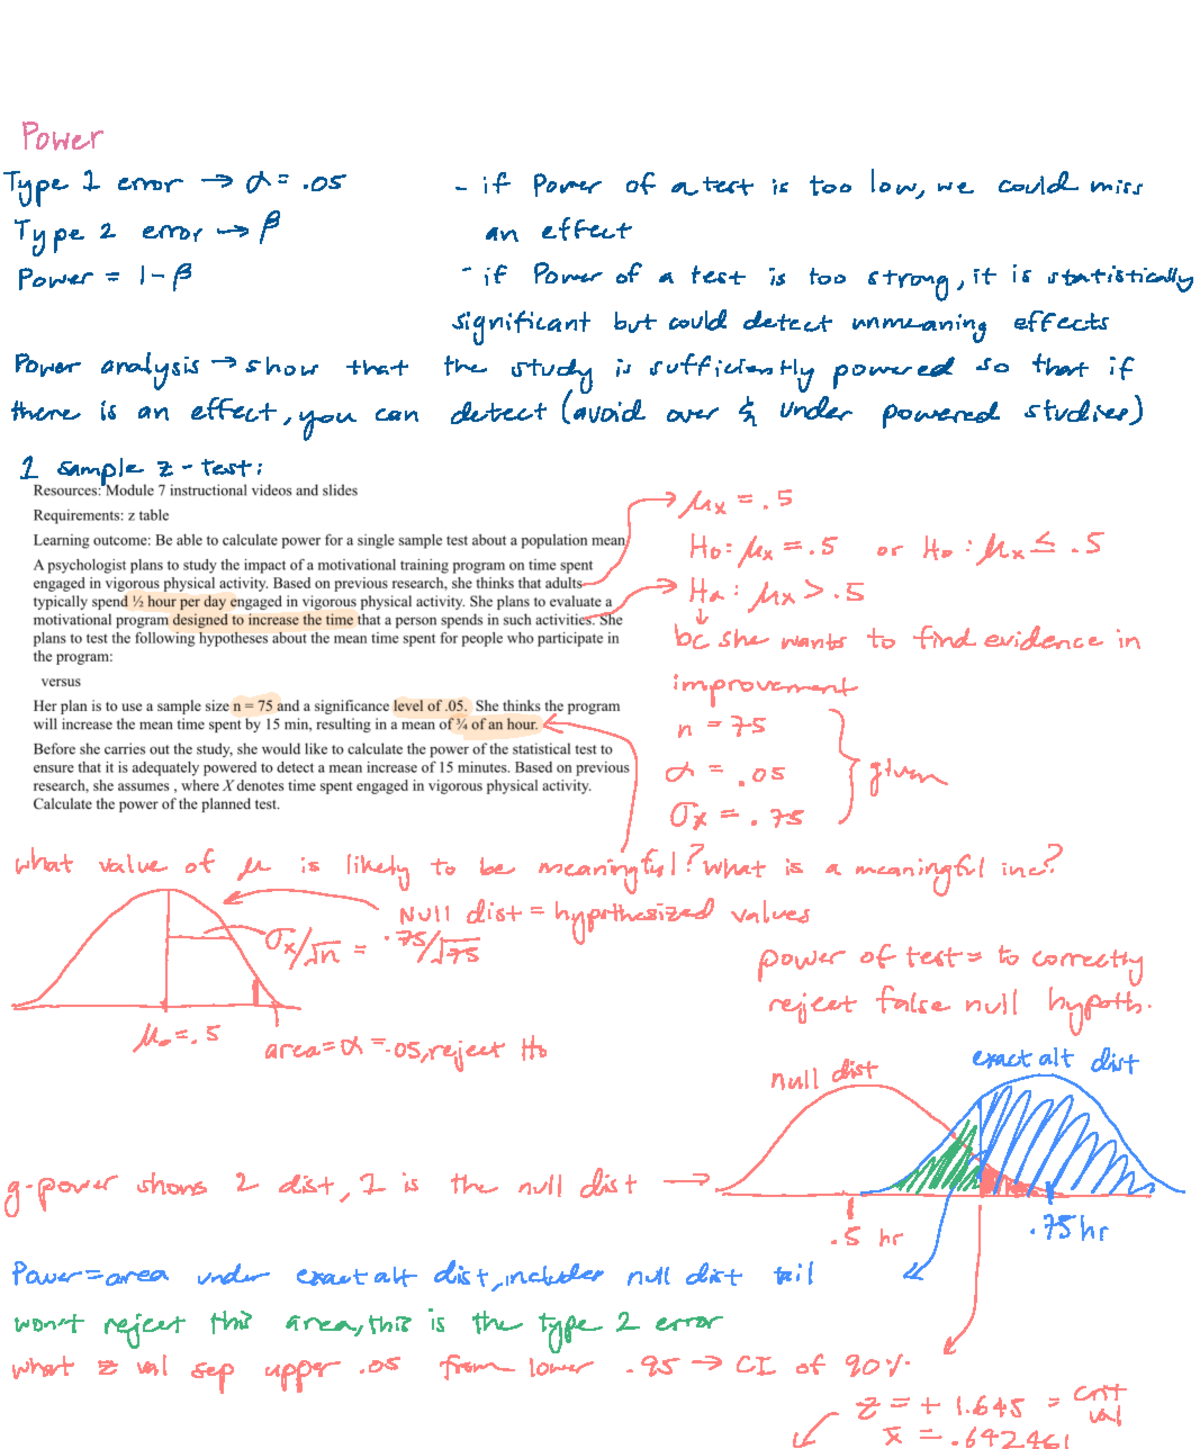 Power
Type 1 error → α = .05
Type 2 error → β
Power = 1 - β
- if Power of a test is too low, we could miss
an effect
- if Power of a test is too strong, it is statistically
significant but could detect unmeaning effects
Power analysis → show that the study is sufficiently powered so that if
there is an effect, you can detect (avoid over & under powered studies)
1 sample z-test:
Resources: Module 7 instructional videos and slides
Requirements: z table
Learning outcome: Be able to calculate power for a single sample test about a population mean
A psychologist plans to study the impact of a motivational training program on time spent
engaged in vigorous physical activity. Based on previous research, she thinks that adults
typically spend ½ hour per day engaged in vigorous physical activity. She plans to evaluate a
motivational program designed to increase the time that a person spends in such activities. She
plans to test the following hypotheses about the mean time spent for people who participate in
the program:
versus
Her plan is to use a sample size n = 75 and a significance level of .05. She thinks the program
will increase the mean time spent by 15 min, resulting in a mean of ¾ of an hour.
Before she carries out the study, she would like to calculate the power of the statistical test to
ensure that it is adequately powered to detect a mean increase of 15 minutes. Based on previous
research, she assumes , where X denotes time spent engaged in vigorous physical activity.
Calculate the power of the planned test.
μx = .5
H0: μx = .5 or H0: μx ≤ .5
Ha: μx > .5
↓
bc she wants to find evidence in
improvement
n = 75
α = .05
σx = .75
given
what value of μ is likely to be meaningful? what is a meaningful inc?
Null dist = hypothesized values
σx/√n = .75/√75
μ0 = .5
area = α = .05, reject H0
power of test = to correctly
reject false null hypoth.
null dist
exact alt dist
g-power shows 2 dist, 1 is the null dist →
.5 hr
.75 hr
Power = area under exact alt dist, includes null dist tail
won't reject this area, this is the type 2 error
what z val sep upper .05 from lower .95 → CI of 90%
z = + 1.645 = crit
val
x̄ = .642461